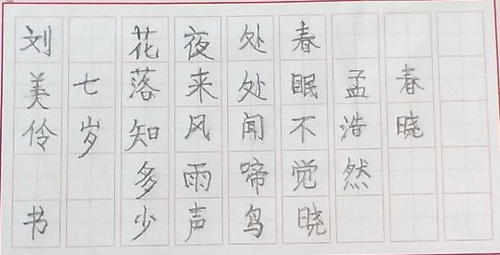 春晓
孟浩然
春眠不觉晓
处处闻啼鸟
夜来风雨声
花落知多少
七岁
刘美伶书